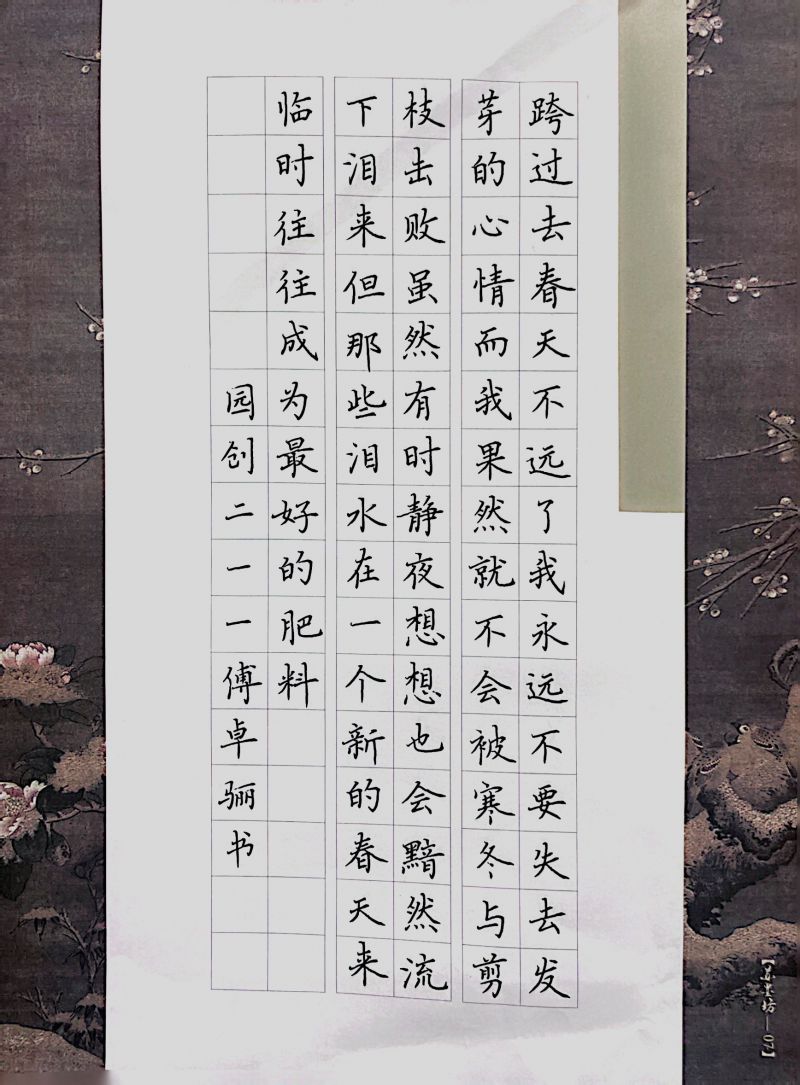 跨过去春天不远了我永远不要失去发
芽的心情而我果然就不会被寒冬与剪
枝击败虽然有时静夜想想也会黯然流
下泪来但那些泪水在一个新的春天来
临时往往成为最好的肥料
园创二一一傅卓骊书